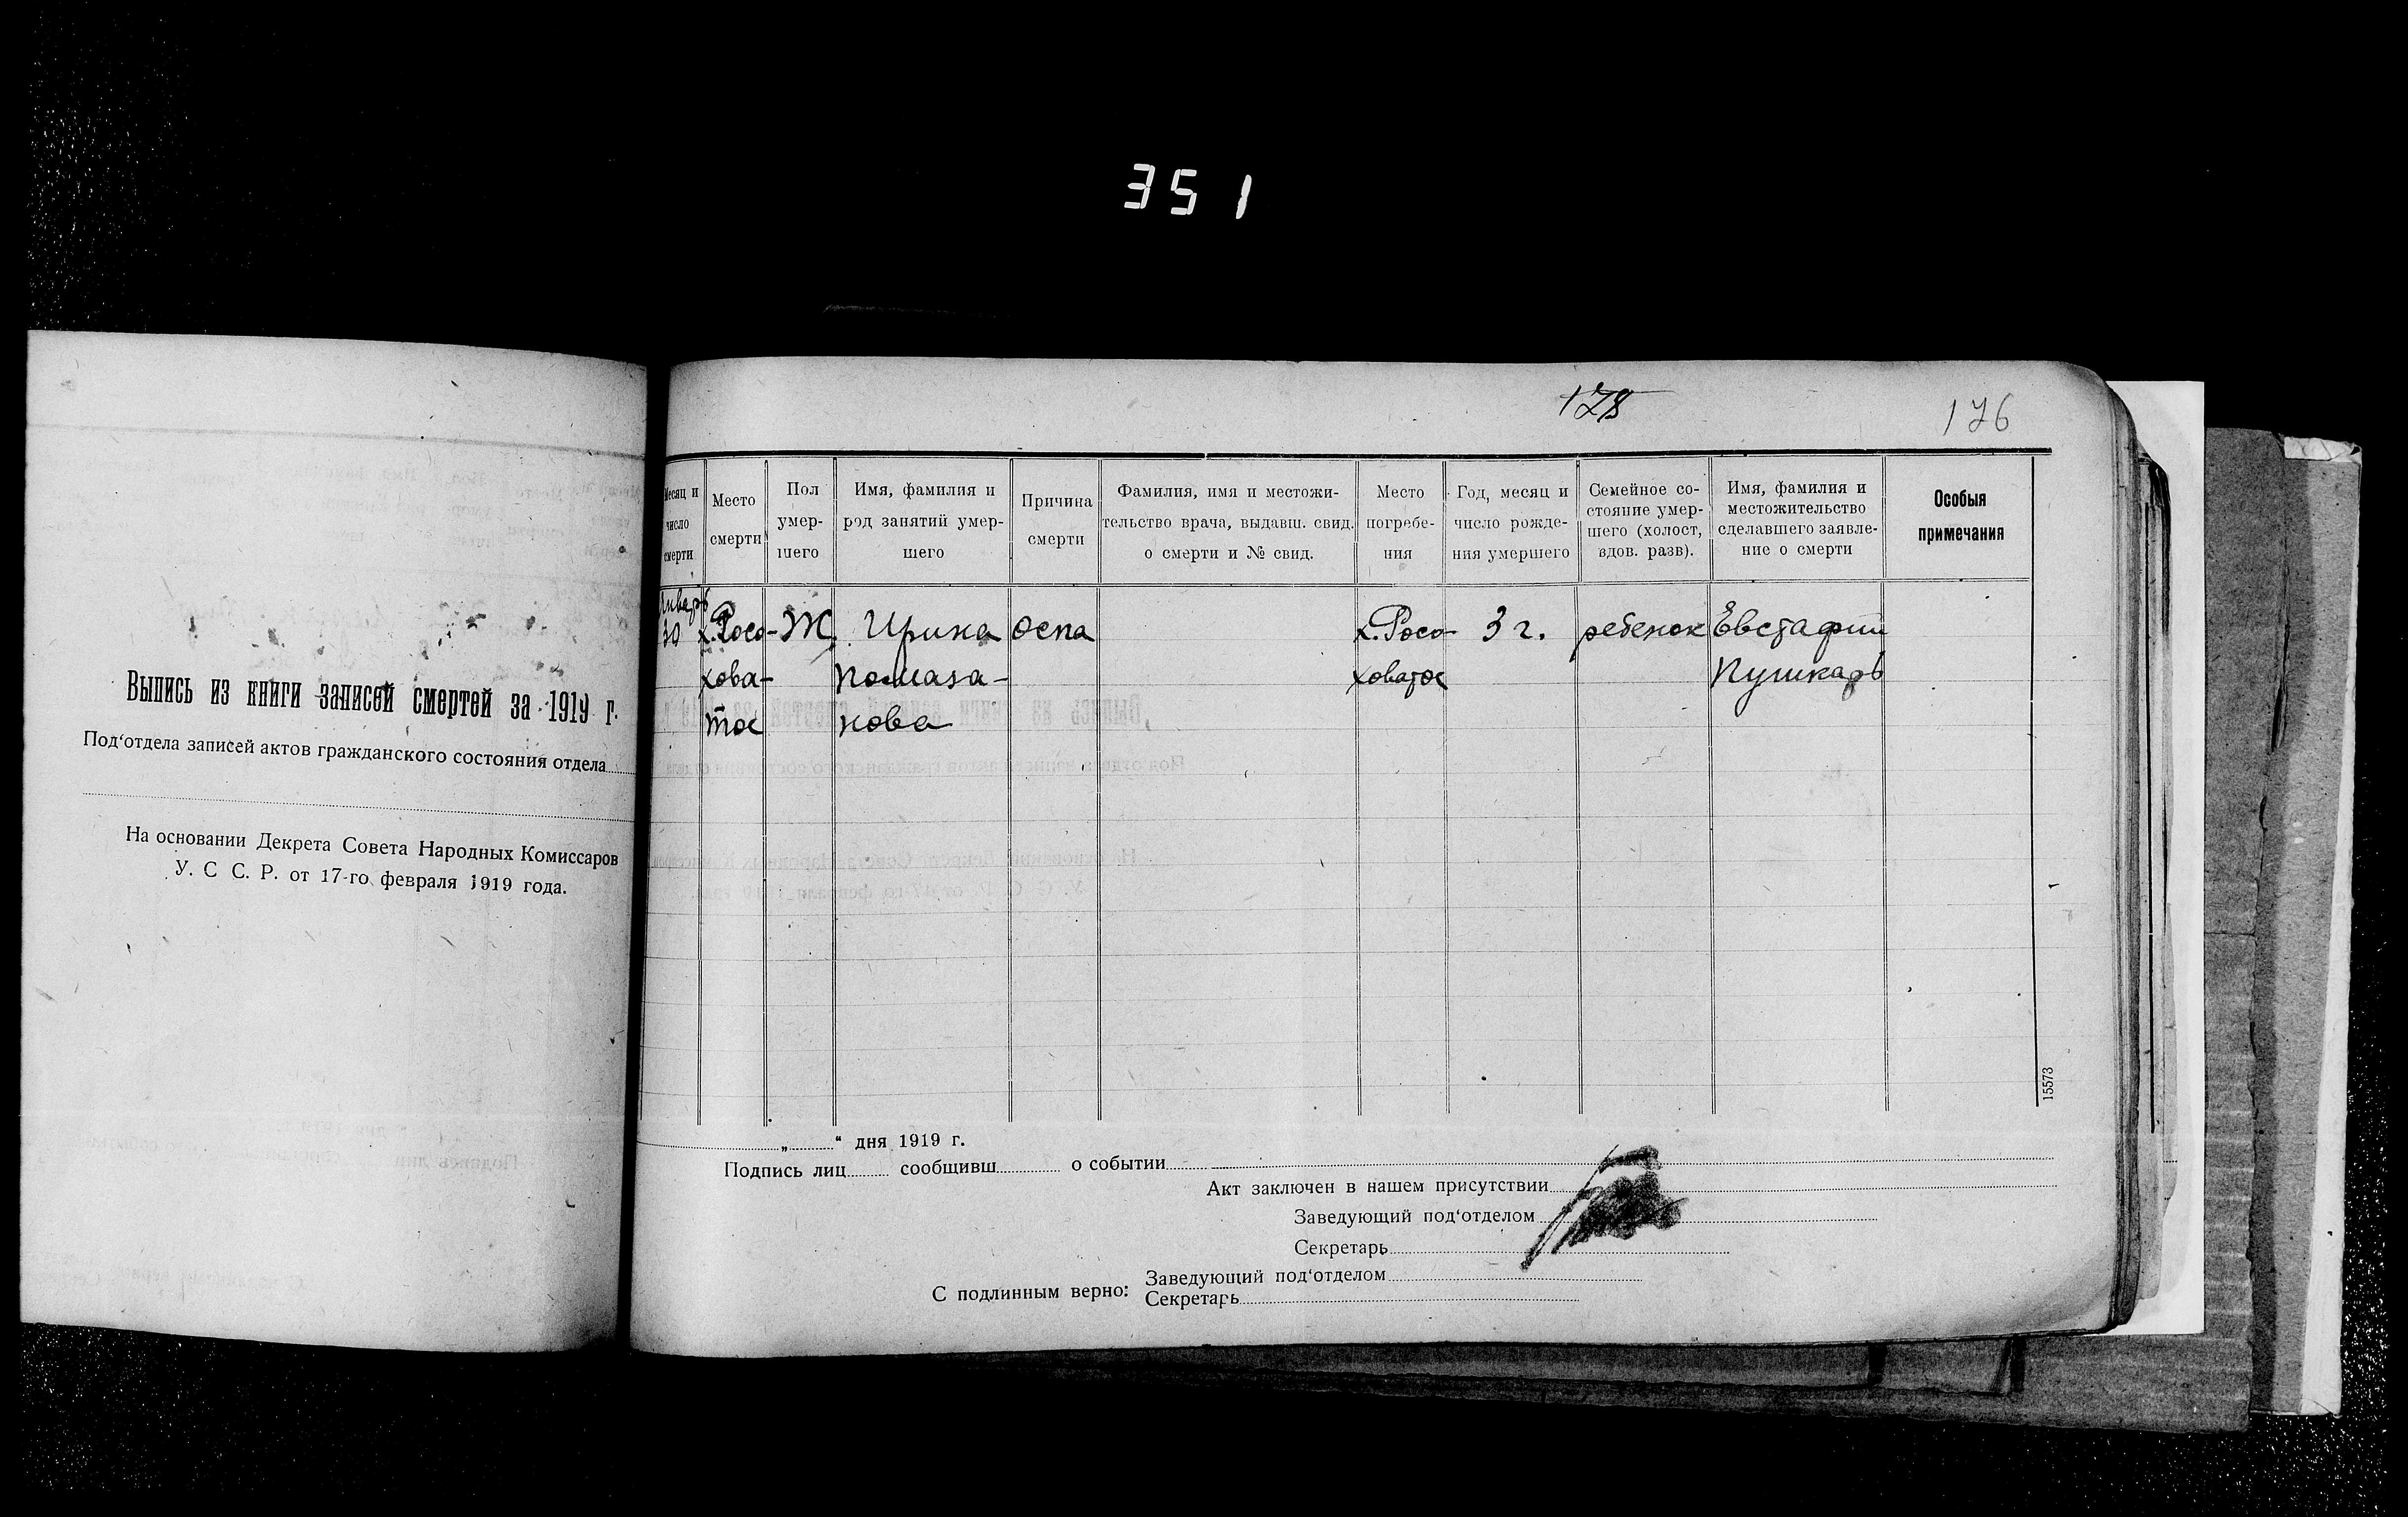 351
178
176
Выпись из книги записей смертей за 1919 г.
Под‘отдела записей актов гражданского состояния отдела
На основании Декрета Совета Народных Комиссаров
У. С С. Р. от 17-го февраля 1919 года.
Месяц и число смерти
Место смерти
Пол умер- шего
Имя, фамилия и род занятий умер- шего
Причина смерти
Фамилия, имя и местожи- тельство врача, выдавш. свид. о смерти и № свид.
Место погребе- ния
Год, месяц и число рожде- ния умершего
Семейное со- стояние умер- шего (холост, вдов. разв).
Имя, фамилия и местожительство сделавшего заявле- ние о смерти
Особыя примечания
Январь
30 х. Росо- Ж. Ирина оспа х. Росо- 3 г. ребенок Евстафий
хова- Помаза- ховатое Пушкарь
тое нова
15573
„ “ дня 1919 г.
Подпись лиц сообщивш о событии
Акт заключен в нашем присутствии
Заведующий под‘отделом
Секретарь
С подлинным верно:
Заведующий под‘отделом
Секретарь